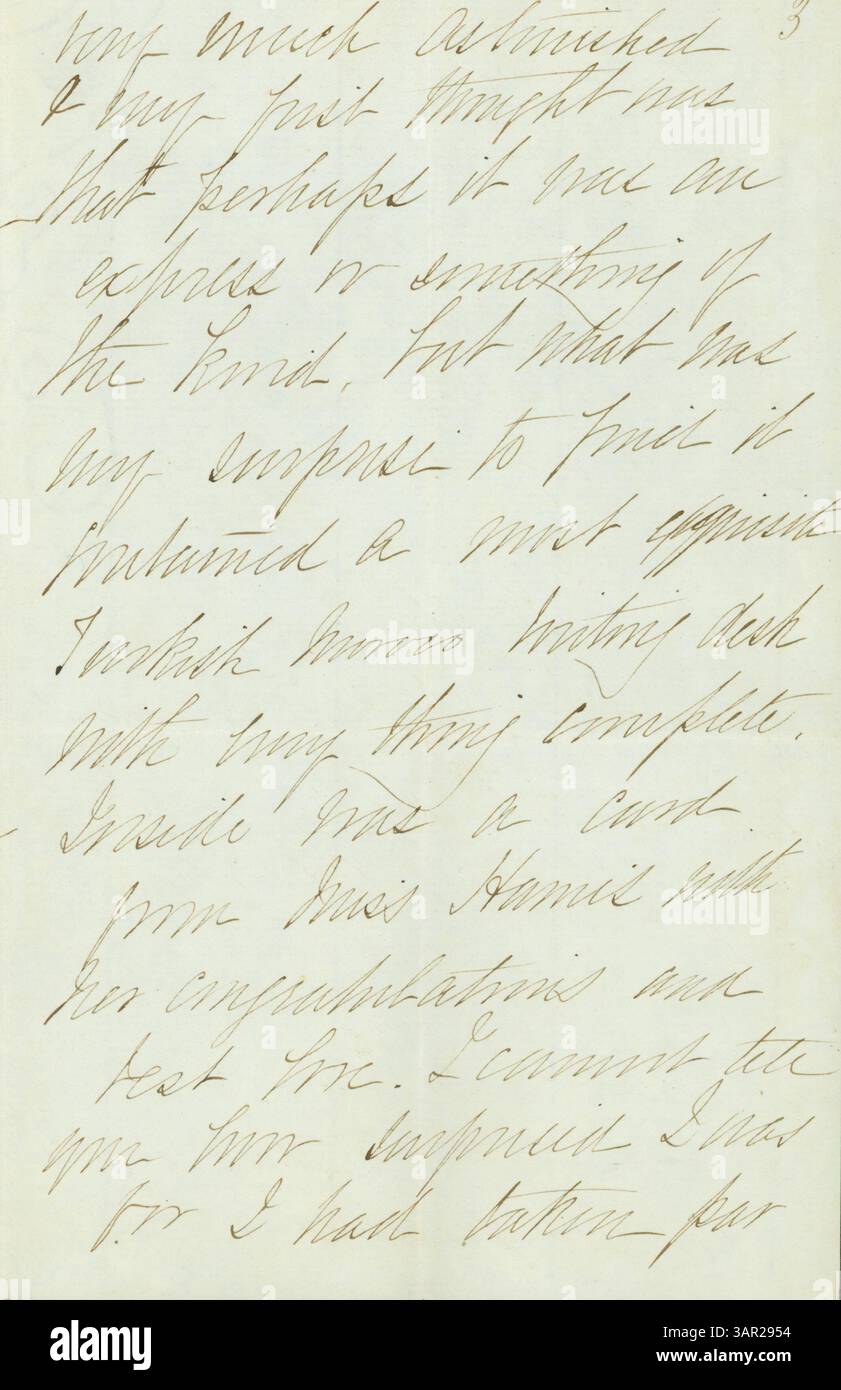 3
very much astonished
& my first thought was
that perhaps it was an
express or something of
the kind, but what was
my surprise to find it
contained a most exquisite
Turkish morocco writing desk
with every thing complete.
Inside was a card
from Miss Harris with
her congratulations and
best love. I cannot tell
you how surprised I was
for I had taken par
alamy
Image ID: 3AR2954
www.alamy.com